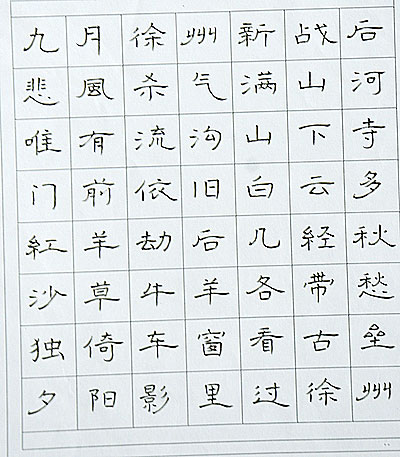 九月徐州新战后
悲風杀气满山河
唯有流沟山下寺
门前依旧白云多
紅羊劫后几経秋
沙草牛羊各带愁
独倚车窗看古垒
夕阳影里过徐州